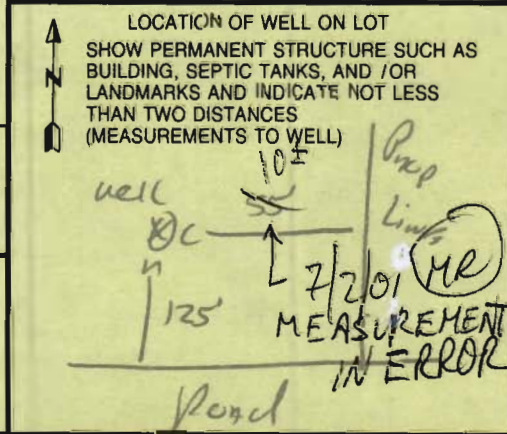 LOCATION OF WELL ON LOT
N
SHOW PERMANENT STRUCTURE SUCH AS
BUILDING, SEPTIC TANKS, AND /OR
LANDMARKS AND INDICATE NOT LESS
THAN TWO DISTANCES
(MEASUREMENTS TO WELL)
10±
55'
well
Prop
Lines
125'
7/2/01 MR
MEASUREMENT
IN ERROR
Road